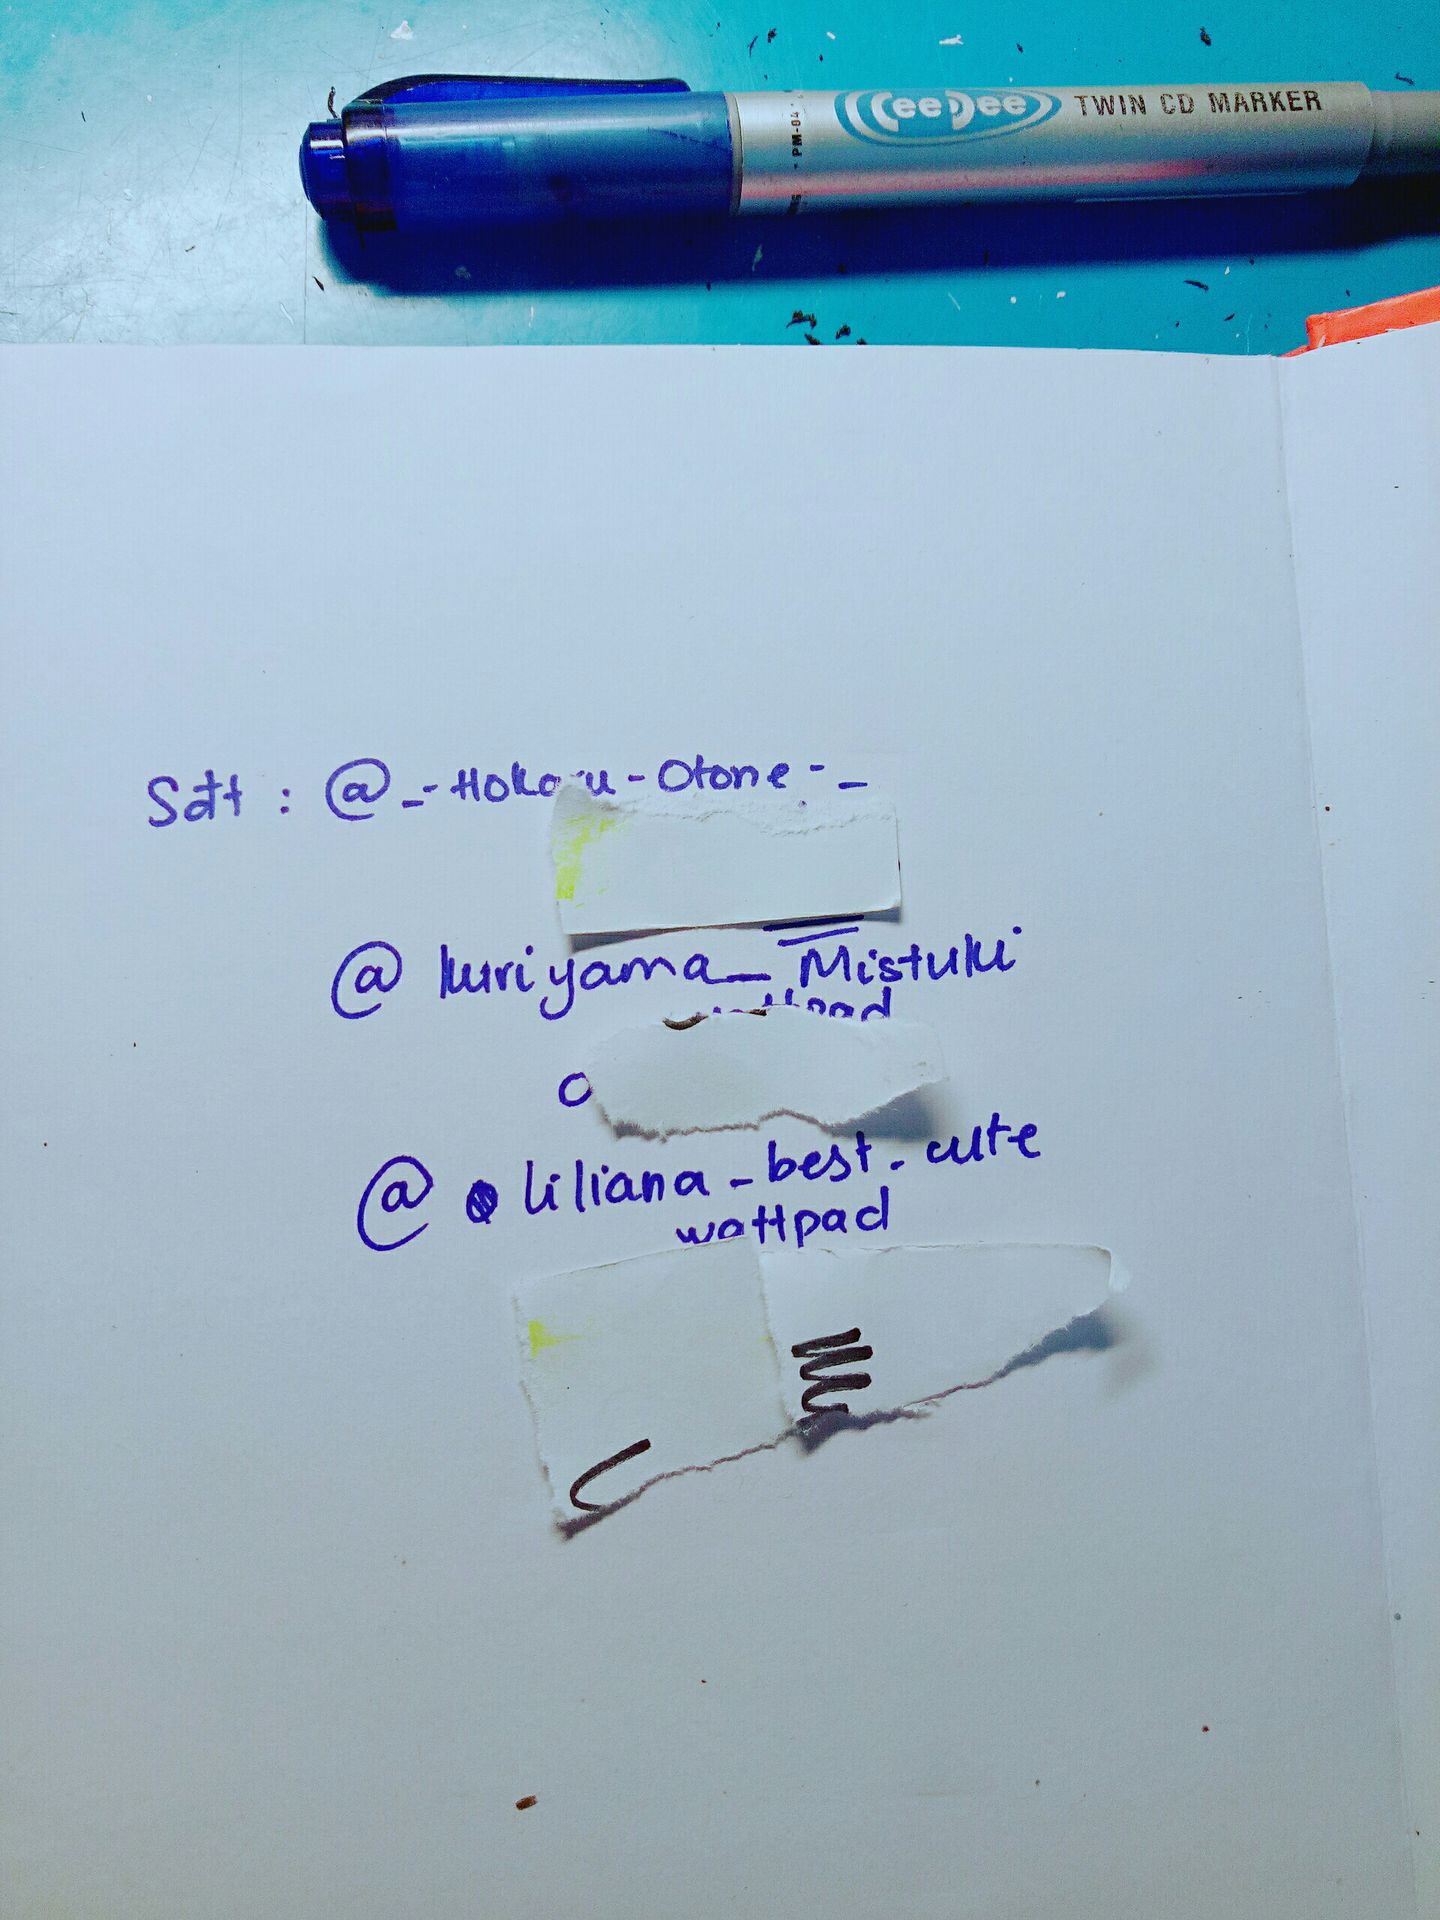 CeeDee TWIN CD MARKER
PM-04
Sđt : @_-Hokaru-Otone-_
@ kuriyama_Mistuki
wattpad
@ liliana_best_cute
wattpad